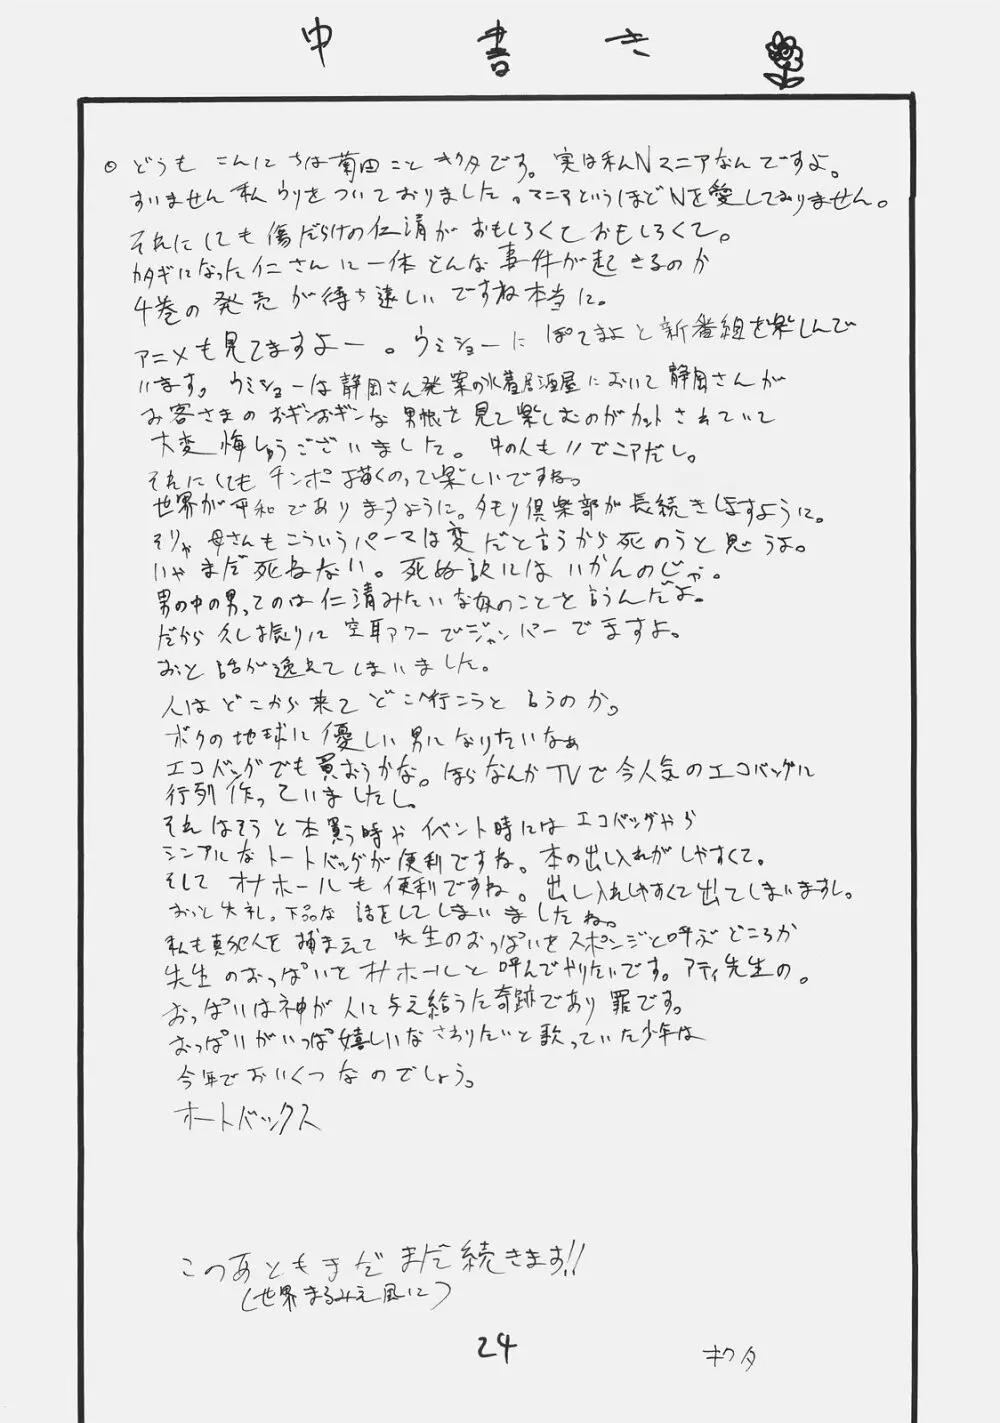 中書き
どうも こんにちは菊田ことキクタです。実は私Nマニアなんですよ。
すいません 私 ウソをついておりました。マニアというほどNを愛しておりません。
それにしても傷だらけの仁清がおもしろくておもしろくて。
カタギになった仁さんに一体どんな事件が起きるのか
4巻の発売が待ち遠しいですね本当に。
アニメも見てますよー。ウミショーにぽてまよと新番組を楽しんで
います。ウミショーは静岡さん発案の水着居酒屋において静岡さんが
お客さまのおギンおギンな男根を見て楽しむのがカットされていて
大変悔しゅうございました。中の人も〃でニアだし。
それにしてもチンポ描くのって楽しいですね。
世界が平和でありますように。タモリ倶楽部が長続きしますように。
そりゃ母さんもこういうパーマは変だと言うから死のうと思うよ。
いやまだ死ねない。死ぬ訳にはいかんのじゃ。
男の中の男ってのは仁清みたいな奴のことを言うんだよ。
だから久し振りに空耳アワーでジャンパーでますよ。
おっと話が逸れてしまいました。
人はどこから来てどこへ行こうと言うのか。
ボクの地球に優しい男になりたいなぁ
エコバッグでも買おうかな。ほらなんかTVで今人気のエコバッグに
行列作っていましたし。
それはそうと本買う時やイベント時にはエコバッグやら
シンプルなトートバッグが便利ですね。本の出し入れがしやすくて。
そしてオナホールも便利ですね。出し入れしやすくて出てしまいますし。
おっと失礼。下品な話をしてしまいましたね。
私も真犯人を捕まえて先生のおっぱいをスポンジと呼ぶどころか
先生のおっぱいをオナホールと呼んでやりたいです。アティ先生の。
おっぱいは神が人に与え給うた奇跡であり罪です。
おっぱいがいっぱい嬉しいなさわりたいと歌っていた少年は
今年でおいくつなのでしょう。
オートバックス
このあともまだまだ続きます!!
(世界まるみえ風に)
24
キクタ